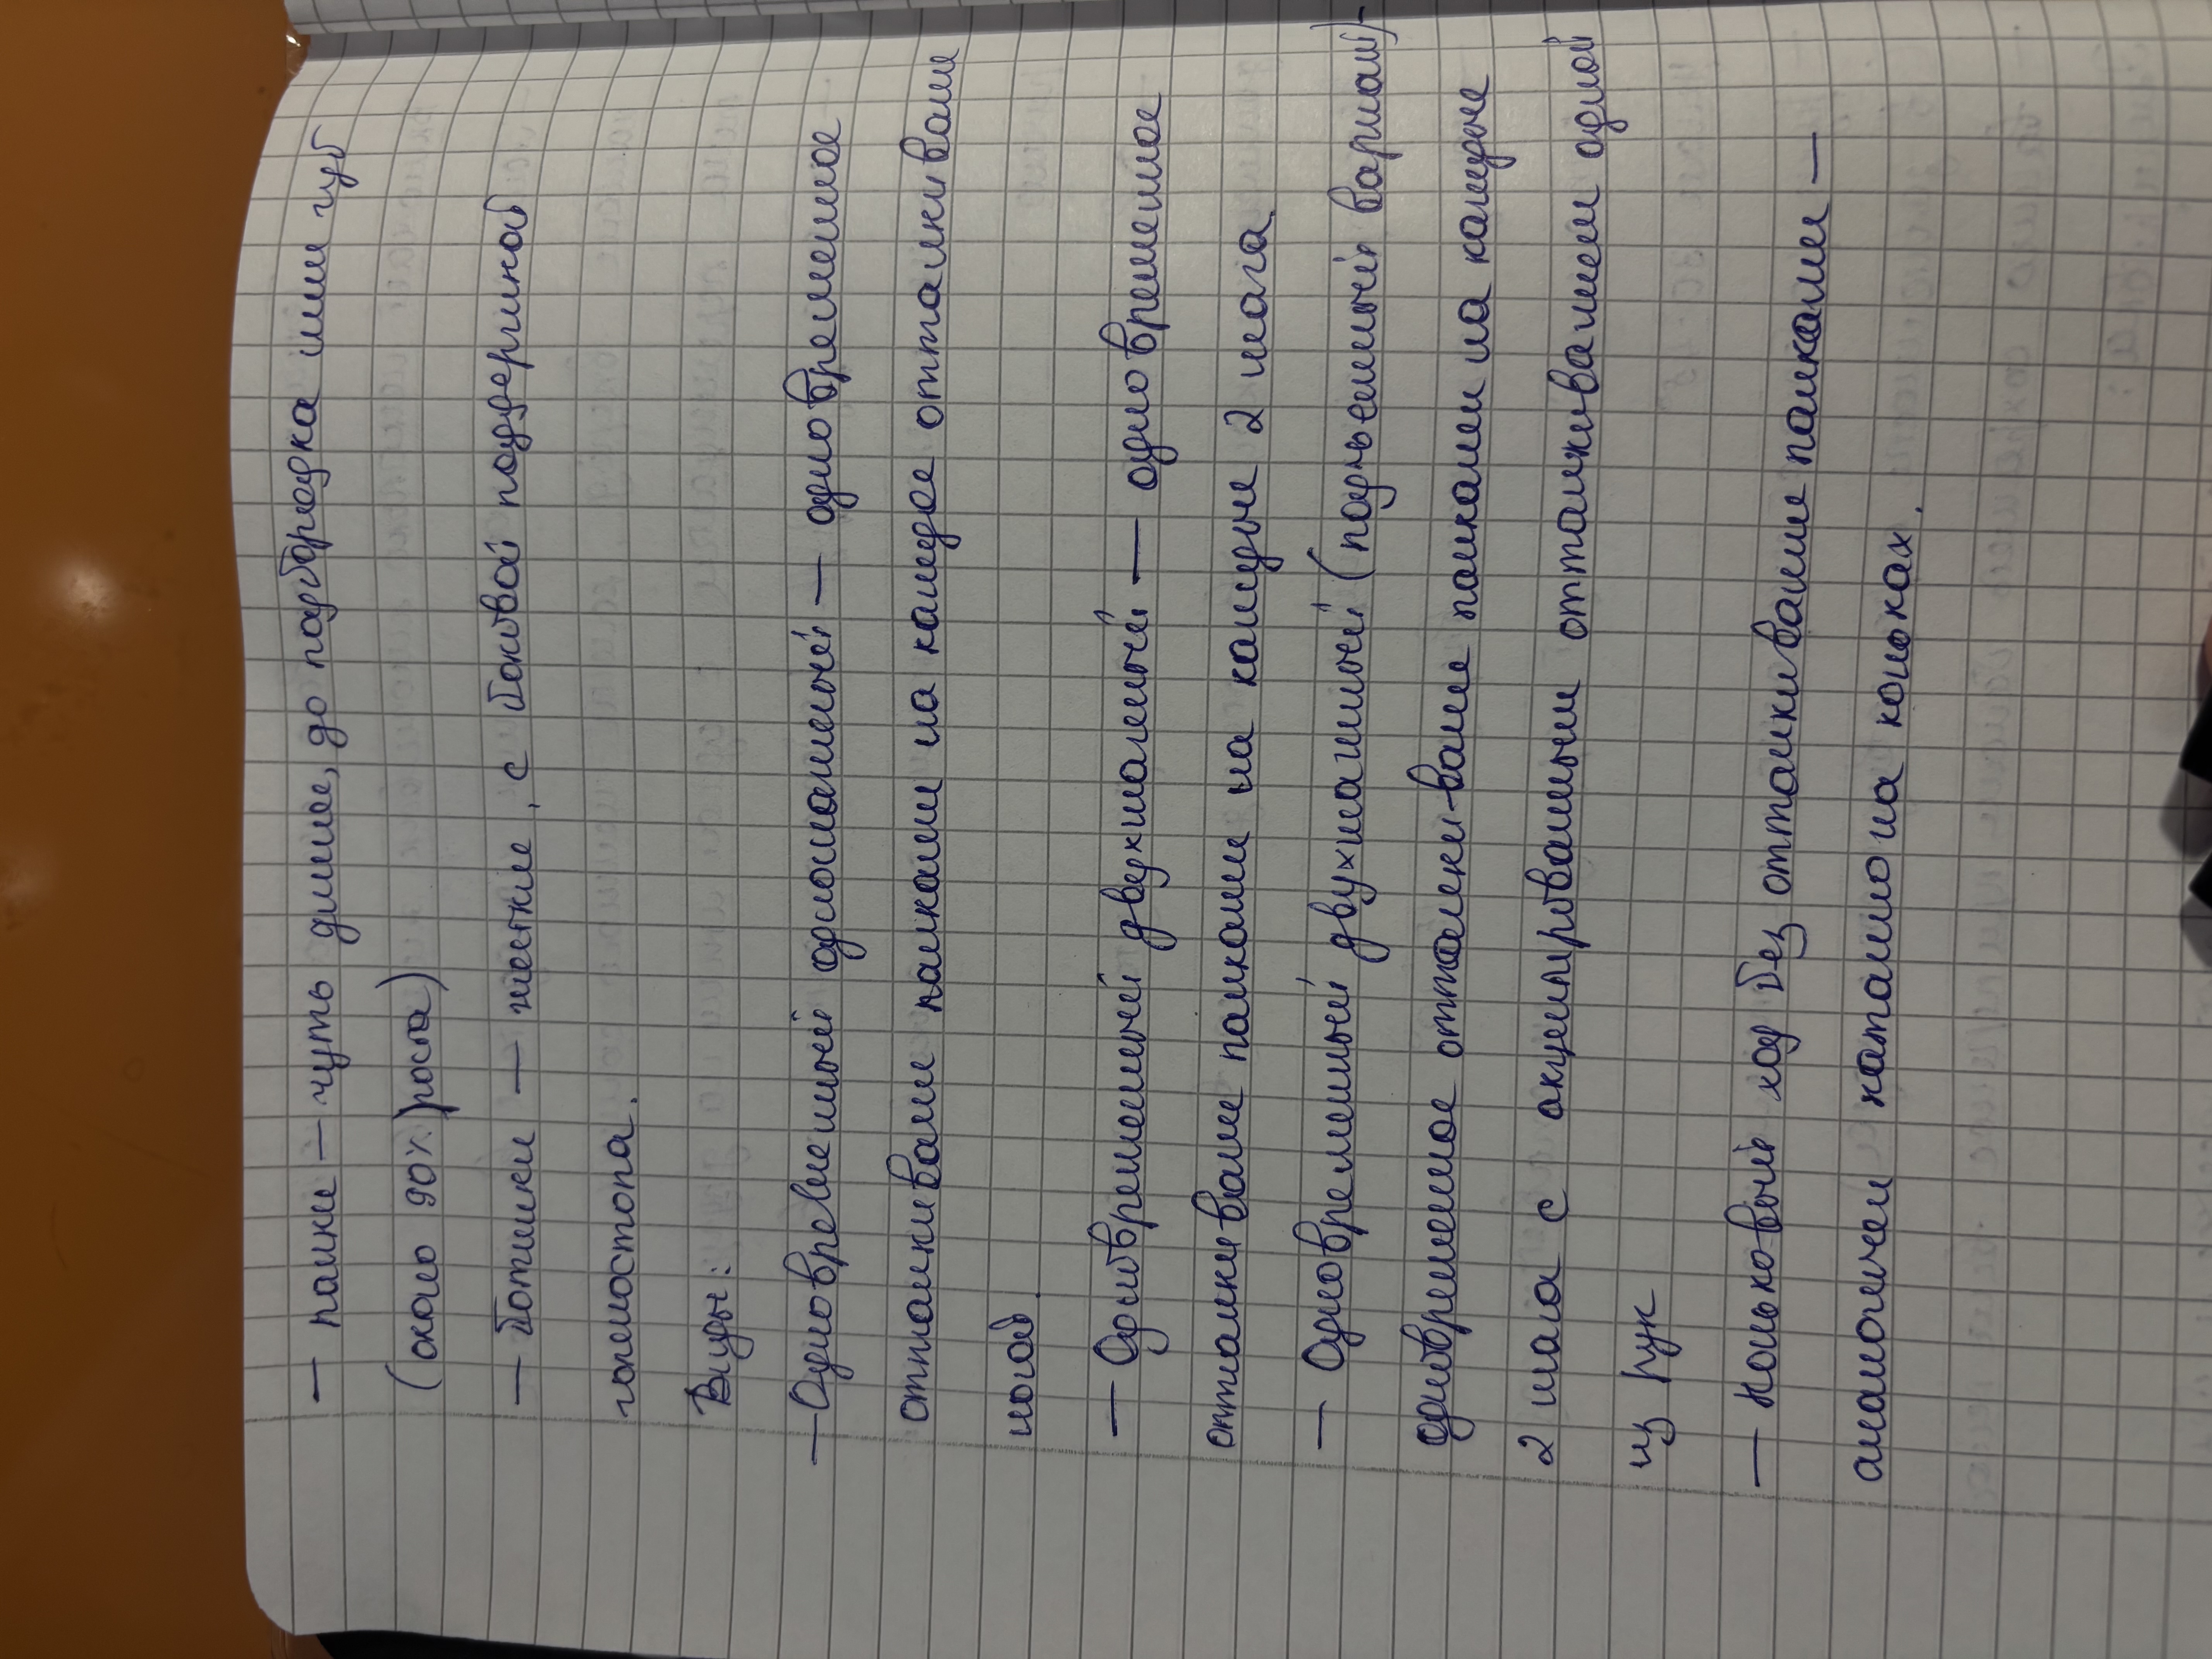 — палки — чуть длине, до подбородка или губ
(около 90% роста)
— Ботинки — жесткие, с боковой поддержкой
голеностопа.
Виды:
— Одновременный одношажный — одновременное
отталкивание палками на каждое отталкивание
ногой.
— Одновременный двухшажный — одновременное
отталкивание палками на каждые 2 шага.
— Одновременный двухшажный (подъемный вариант) -
одновременное отталкивание палками на каждые
2 шага с акцентированным отталкиванием одной
из рук
— Коньковый ход без отталкивание палками —
аналогичен катанию на коньках.